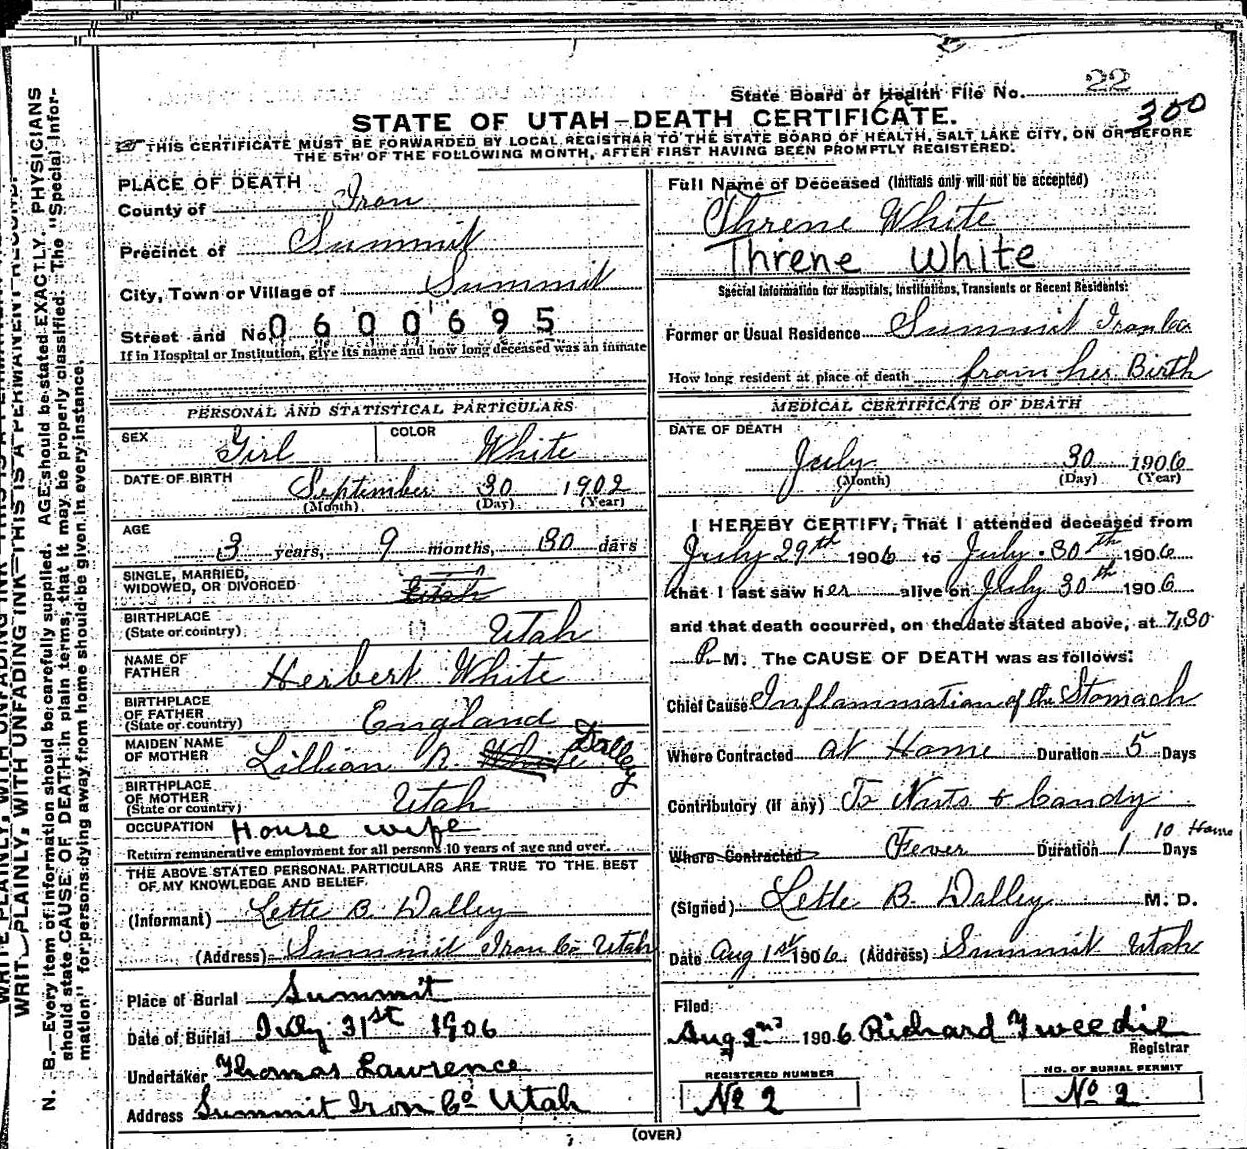 State Board of Health File No. 22
300
STATE OF UTAH—DEATH CERTIFICATE.
THIS CERTIFICATE MUST BE FORWARDED BY LOCAL REGISTRAR TO THE STATE BOARD OF HEALTH, SALT LAKE CITY, ON OR BEFORE
THE 5TH OF THE FOLLOWING MONTH, AFTER FIRST HAVING BEEN PROMPTLY REGISTERED.
PLACE OF DEATH
County of Iron
Precinct of Summit
City, Town or Village of Summit
Street and No. 0600695
If in Hospital or Institution, give its name and how long deceased was an inmate
PERSONAL AND STATISTICAL PARTICULARS
SEX Girl COLOR White
DATE OF BIRTH September 30 1902
(Month) (Day) (Year)
AGE 3 years, 9 months, 30 days
SINGLE, MARRIED,
WIDOWED, OR DIVORCED Utah
BIRTHPLACE
(State or country) Utah
NAME OF
FATHER Herbert White
BIRTHPLACE
OF FATHER
(State or country) England
MAIDEN NAME
OF MOTHER Lillian R. White Dalley
BIRTHPLACE
OF MOTHER
(State or country) Utah
OCCUPATION House wife
Return remunerative employment for all persons 10 years of age and over.
THE ABOVE STATED PERSONAL PARTICULARS ARE TRUE TO THE BEST
OF MY KNOWLEDGE AND BELIEF.
(Informant) Lette B. Dalley
(Address) Summit Iron Co Utah
Place of Burial Summit
Date of Burial July 31st 1906
Undertaker Thomas Lawrence
Address Summit Iron Co Utah
Full Name of Deceased (Initials only will not be accepted)
Threne White
Threne White
Special Information for Hospitals, Institutions, Transients or Recent Residents:
Former or Usual Residence Summit Iron Co.
How long resident at place of death from her Birth
MEDICAL CERTIFICATE OF DEATH
DATE OF DEATH
July 30 1906
(Month) (Day) (Year)
I HEREBY CERTIFY, That I attended deceased from
July 29th 1906 to July 30th 1906
that I last saw her alive on July 30th 1906
and that death occurred, on the date stated above, at 7,30
P. M. The CAUSE OF DEATH was as follows:
Chief Cause Inflammation of the Stomach
Where Contracted at Home Duration 5 Days
Contributory (if any) To Nuts & Candy
Where Contracted Fever Duration 1 Days
10
(Signed) Lette B. Dalley M. D.
Date Aug 1st 1906 (Address) Summit Utah
Filed
Aug 2nd 1906 Richard Tweedie
Registrar
REGISTERED NUMBER
No 2
NO. OF BURIAL PERMIT
No 2
(OVER)
WRITE PLAINLY, WITH UNFADING INK—THIS IS A PERMANENT RECORD.
N. B.—Every item of information should be carefully supplied. AGE should be stated EXACTLY. PHYSICIANS
should state CAUSE OF DEATH in plain terms, that it may be properly classified. The "Special Infor-
mation" for persons dying away from home should be given in every instance.